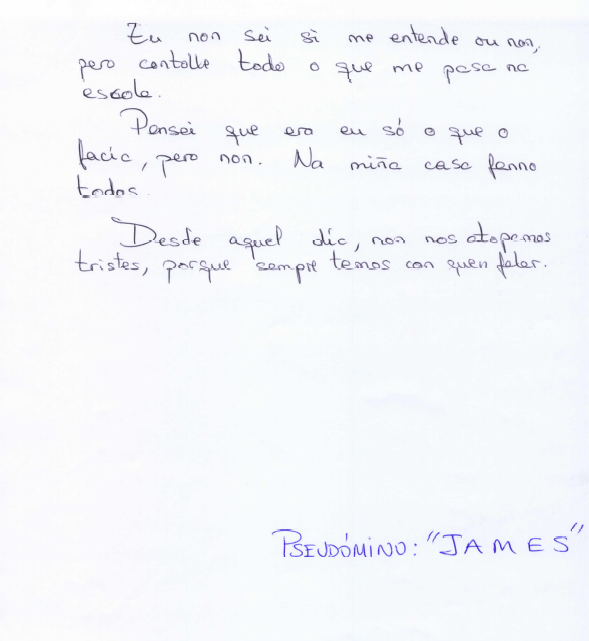 Eu non sei si me entende ou non,
pero contolle todo o que me pasa na
escola.
Pensei que era eu só o que o
facía, pero non. Na miña casa fanno
todos.
Desde aquel día, non nos atopamos
tristes, porque sempre temos con quen falar.
PSEUDÓMINO: "JAMES"